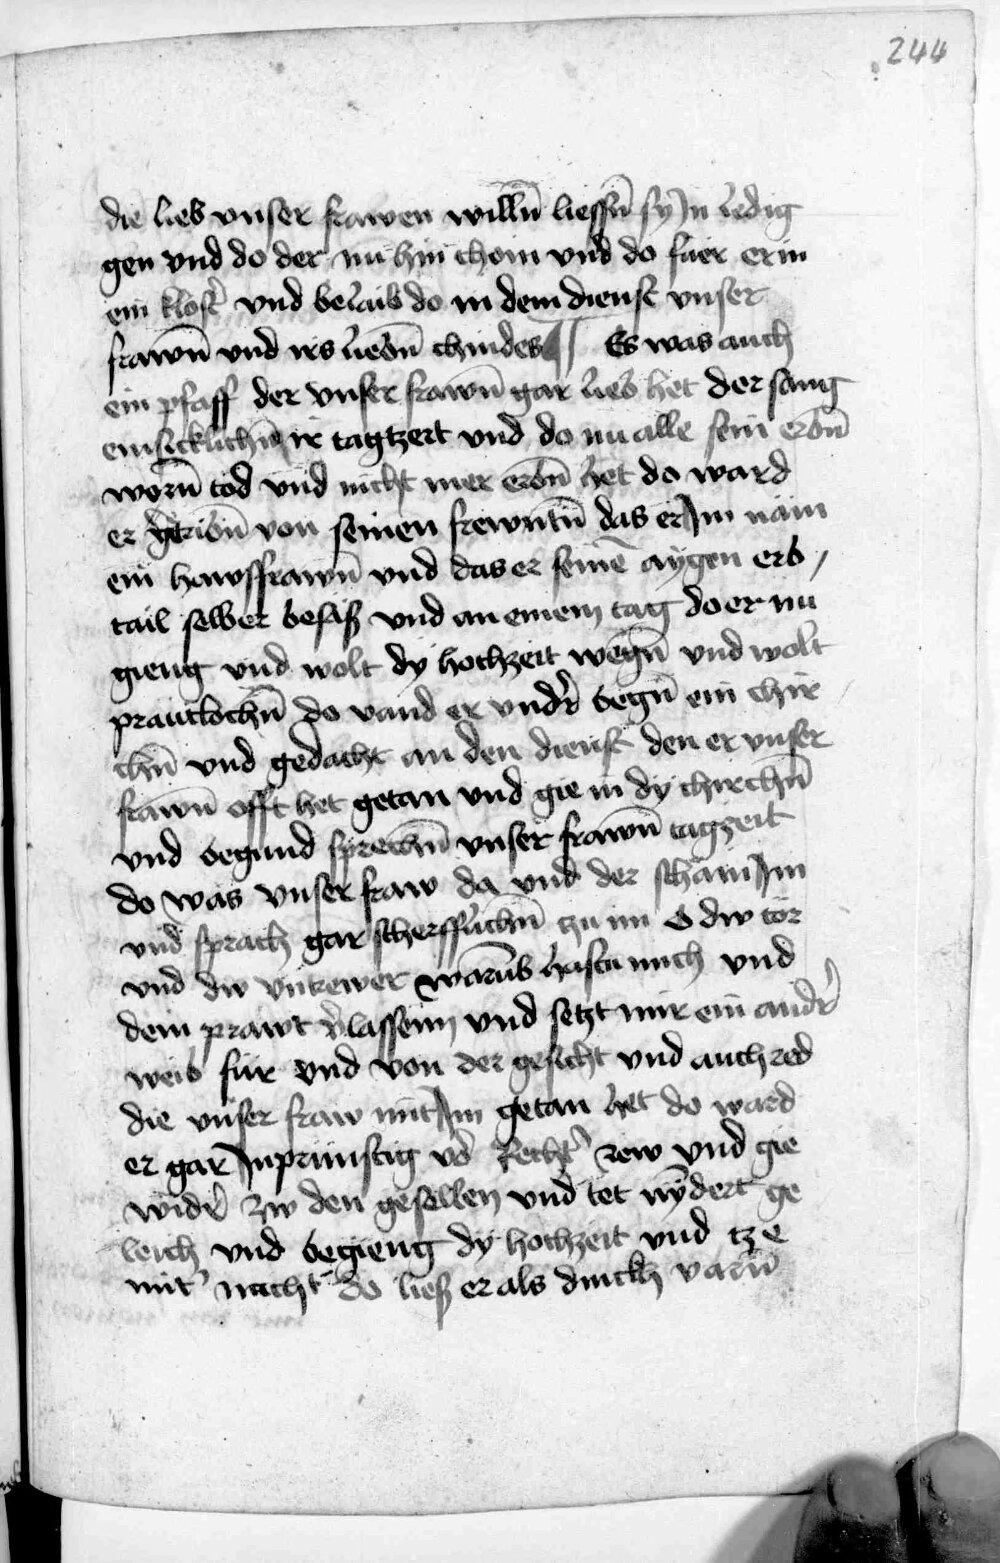 244
die lieb vnser frawen willn̄ liessn̄ sy Jn ledig
gen vnd do der nu hin chom vnd do fuer er in
ein klost͛ vnd belaib do in dem dienst vnser
frawn̄ vnd irs liebn̄ chindes ¶ Es was auch
ein pfaff der vnser frawn̄ gar lieb het der sang
emsicklichn̄ ir tagtzeit vnd do nu alle sein erbn̄
worn̄ tod vnd nicht mer erbn̄ het do ward
er getribn̄ von seinen frewntn̄ das er Jm näm
ein hawsfrawn̄ vnd das er seinē aygen erb
tail selber besäß vnd an einem tag do er nu
gieng vnd wolt dy hochzeit wegn̄ vnd wolt
prautlochn̄ do vand er vnd͛ wegn̄ ein chir
chn̄ vnd gedacht an den dienst den er vnser
frawn̄ offt het getan vnd gie in dy chirchn̄
vnd begund sprechn̄ vnser frawn̄ tagzeit
do was vnser fraw da vnd der schain Jm
vnd sprach gar scherfflichn̄ zu im O dw tor
vnd dw vntrewer warūb hastu mich vnd
dein prawt v͛lassenn vnd setzt mir ein and͛
weib für vnd von der gesicht vnd auch red
die vnser fraw mit Jm getan het do ward
er gar Jnprünstig vō Recht͛ rew vnd gie
wid͛ zw den gesellen vnd tet nȳdert ge
leich vnd begieng dy hochzeit vnd tze
mit͛ nacht do ließ er als dinckh varn̄